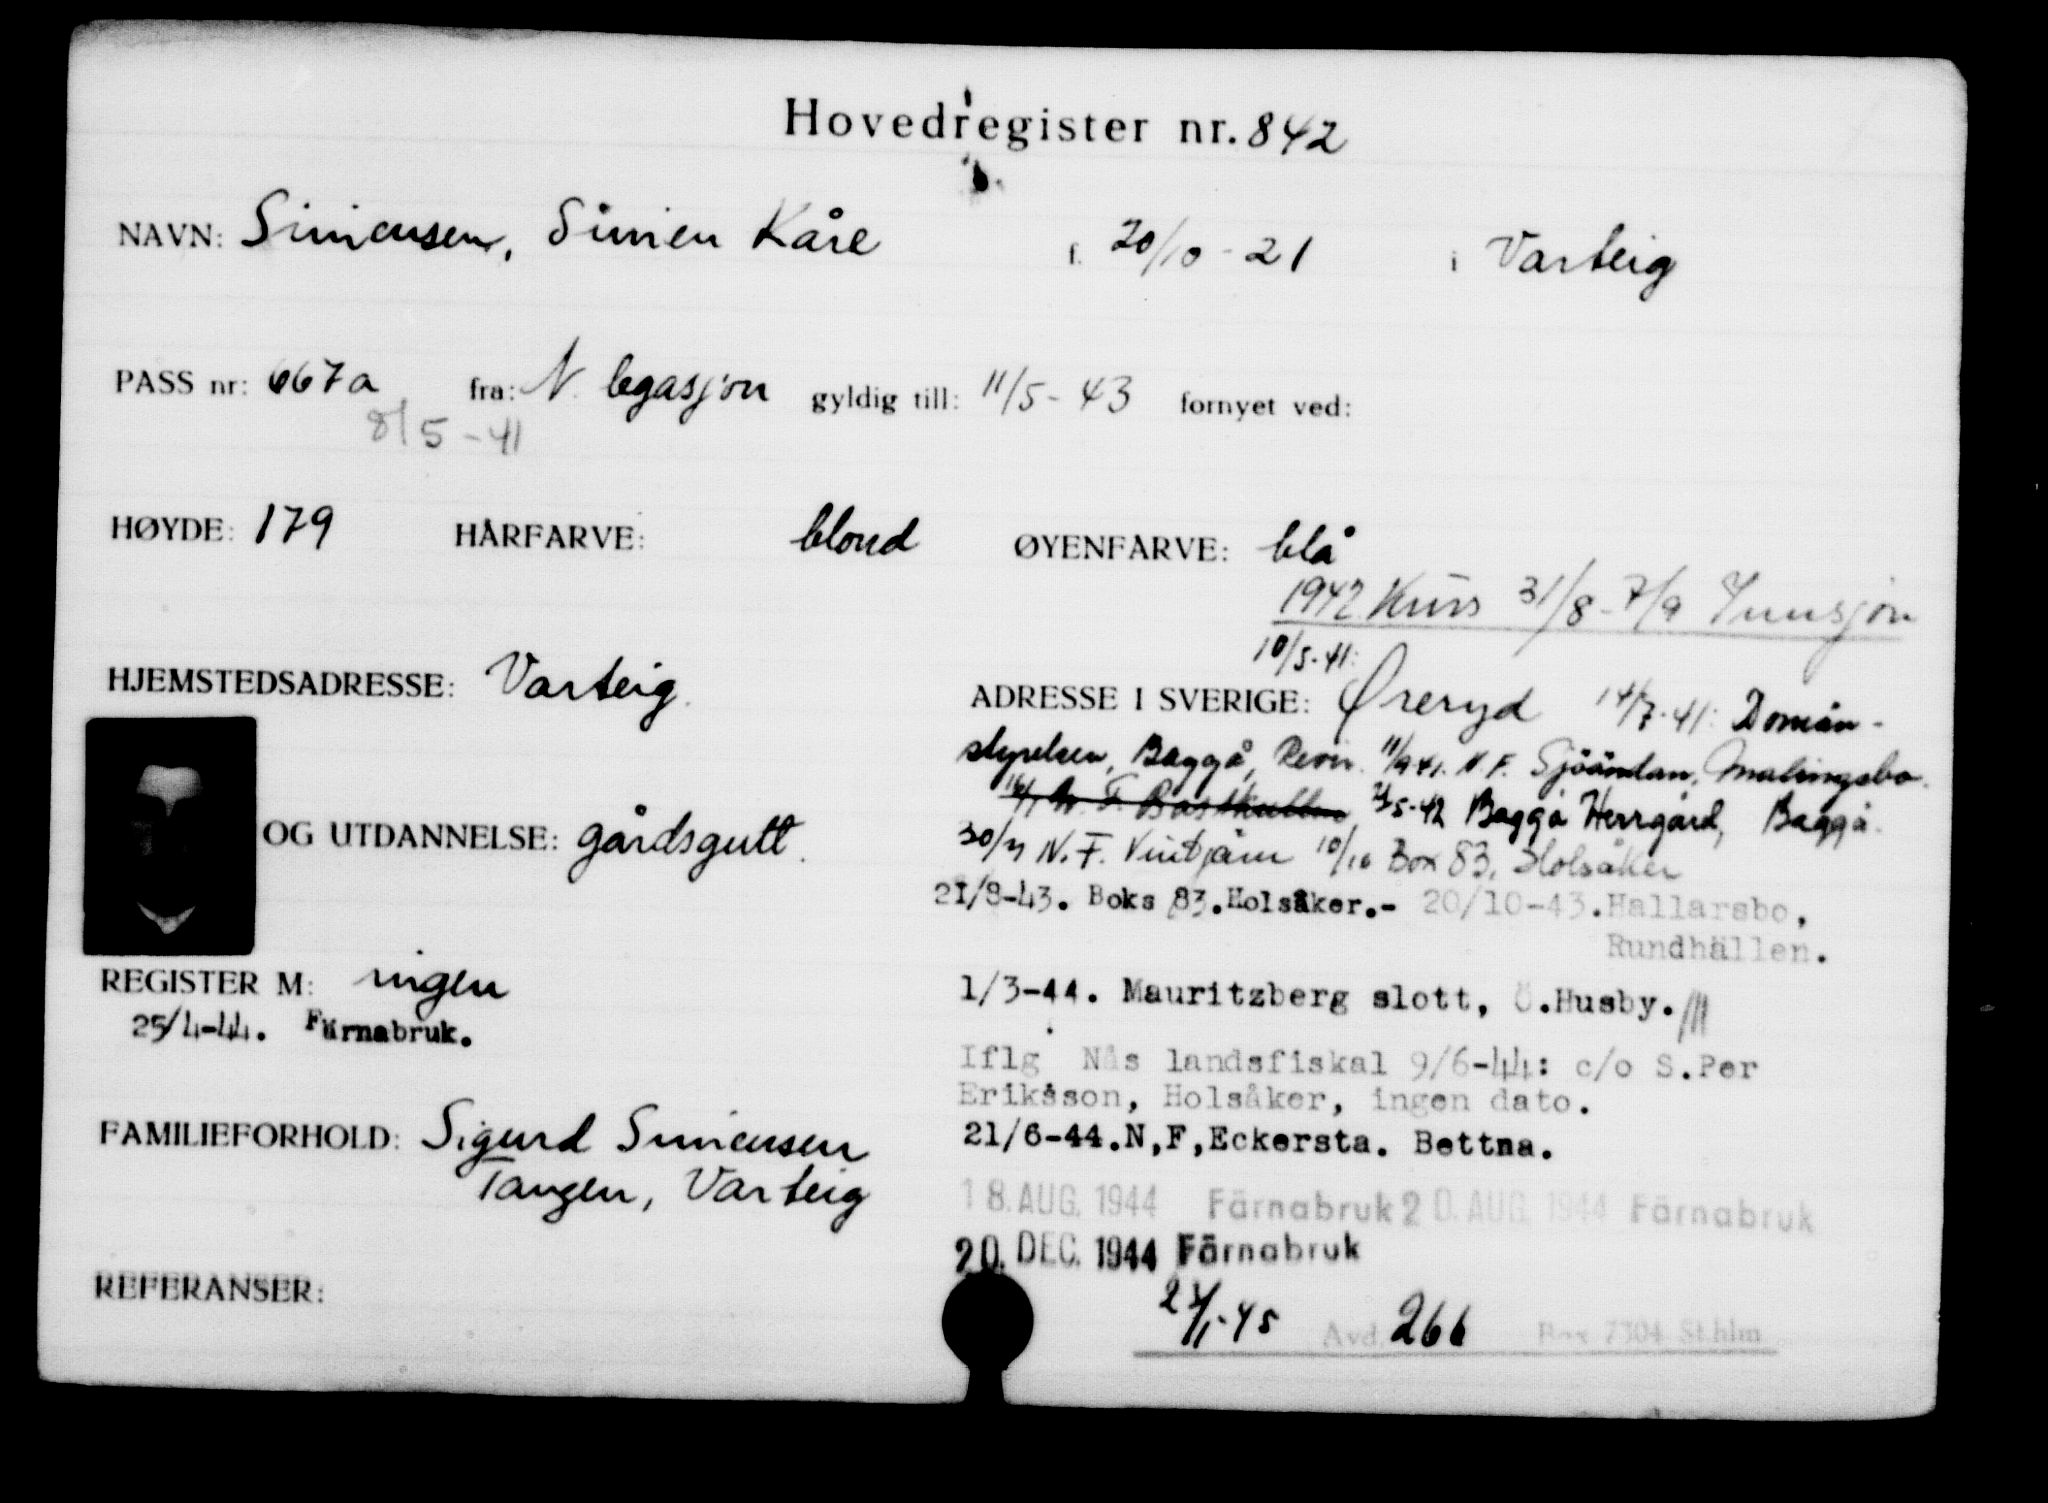 Hovedregister nr. 842
NAVN: Simensen, Simen Kåre f. 20/10-21 i Varteig
PASS nr: 667a fra: N. legasjon gyldig till: 11/5-43 fornyet ved:
8/5-41
HØYDE: 179 HÅRFARVE: blond ØYENFARVE: blå
1942 Kurs 31/8-7/9
10/5-41:
HJEMSTEDSADRESSE: Varteig. ADRESSE I SVERIGE: Øreryd 14/7-41: Domän-
styrelsen, Baggå, Revir. 11/9 41. N.F. Sjöändan, Malingsbo.
N.F. Bastkullen 5-42 Baggå Herrgård, Baggå.
OG UTDANNELSE: gårdsgutt.
30/7 N.F. Vintjärn 10/10 Box 83, Holsåker
21/8-43. Boks 83. Holsåker.- 20/10-43. Hallarsbo,
Rundhällen.
REGISTER M: ingen
25/4-44. Färnabruk.
1/3-44. Mauritzberg slott, Ö.Husby.
Iflg Nås landsfiskal 9/6-44: c/o S.Per
Eriksson, Holsåker, ingen dato.
FAMILIEFORHOLD: Sigurd Simensen
Tangen, Varteig
21/6-44.N,F,Eckersta. Bettna.
18. AUG. 1944 Färnabruk 20. AUG. 1944 Färnabruk
20. DEC. 1944 Färnabruk
REFERANSER:
1-45 Avd. 266 Box 7304 St.hlm